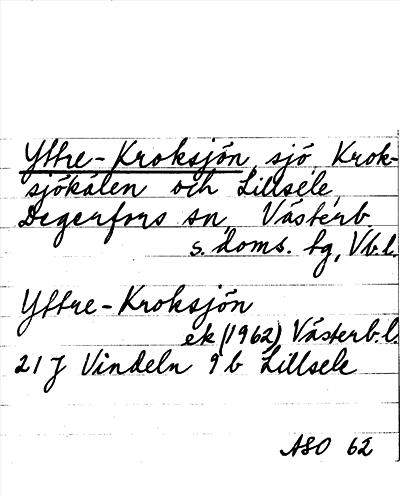 Yttre-Kroksjön, sjö, Krok-
sjökälen och Lillsele,
Degerfors sn, Västerb.
s. doms. tg, Vb.l.
Yttre-Kroksjön
ek (1962) Västerb.l.
21 J Vindeln 9 b Lillsele
ASO 62